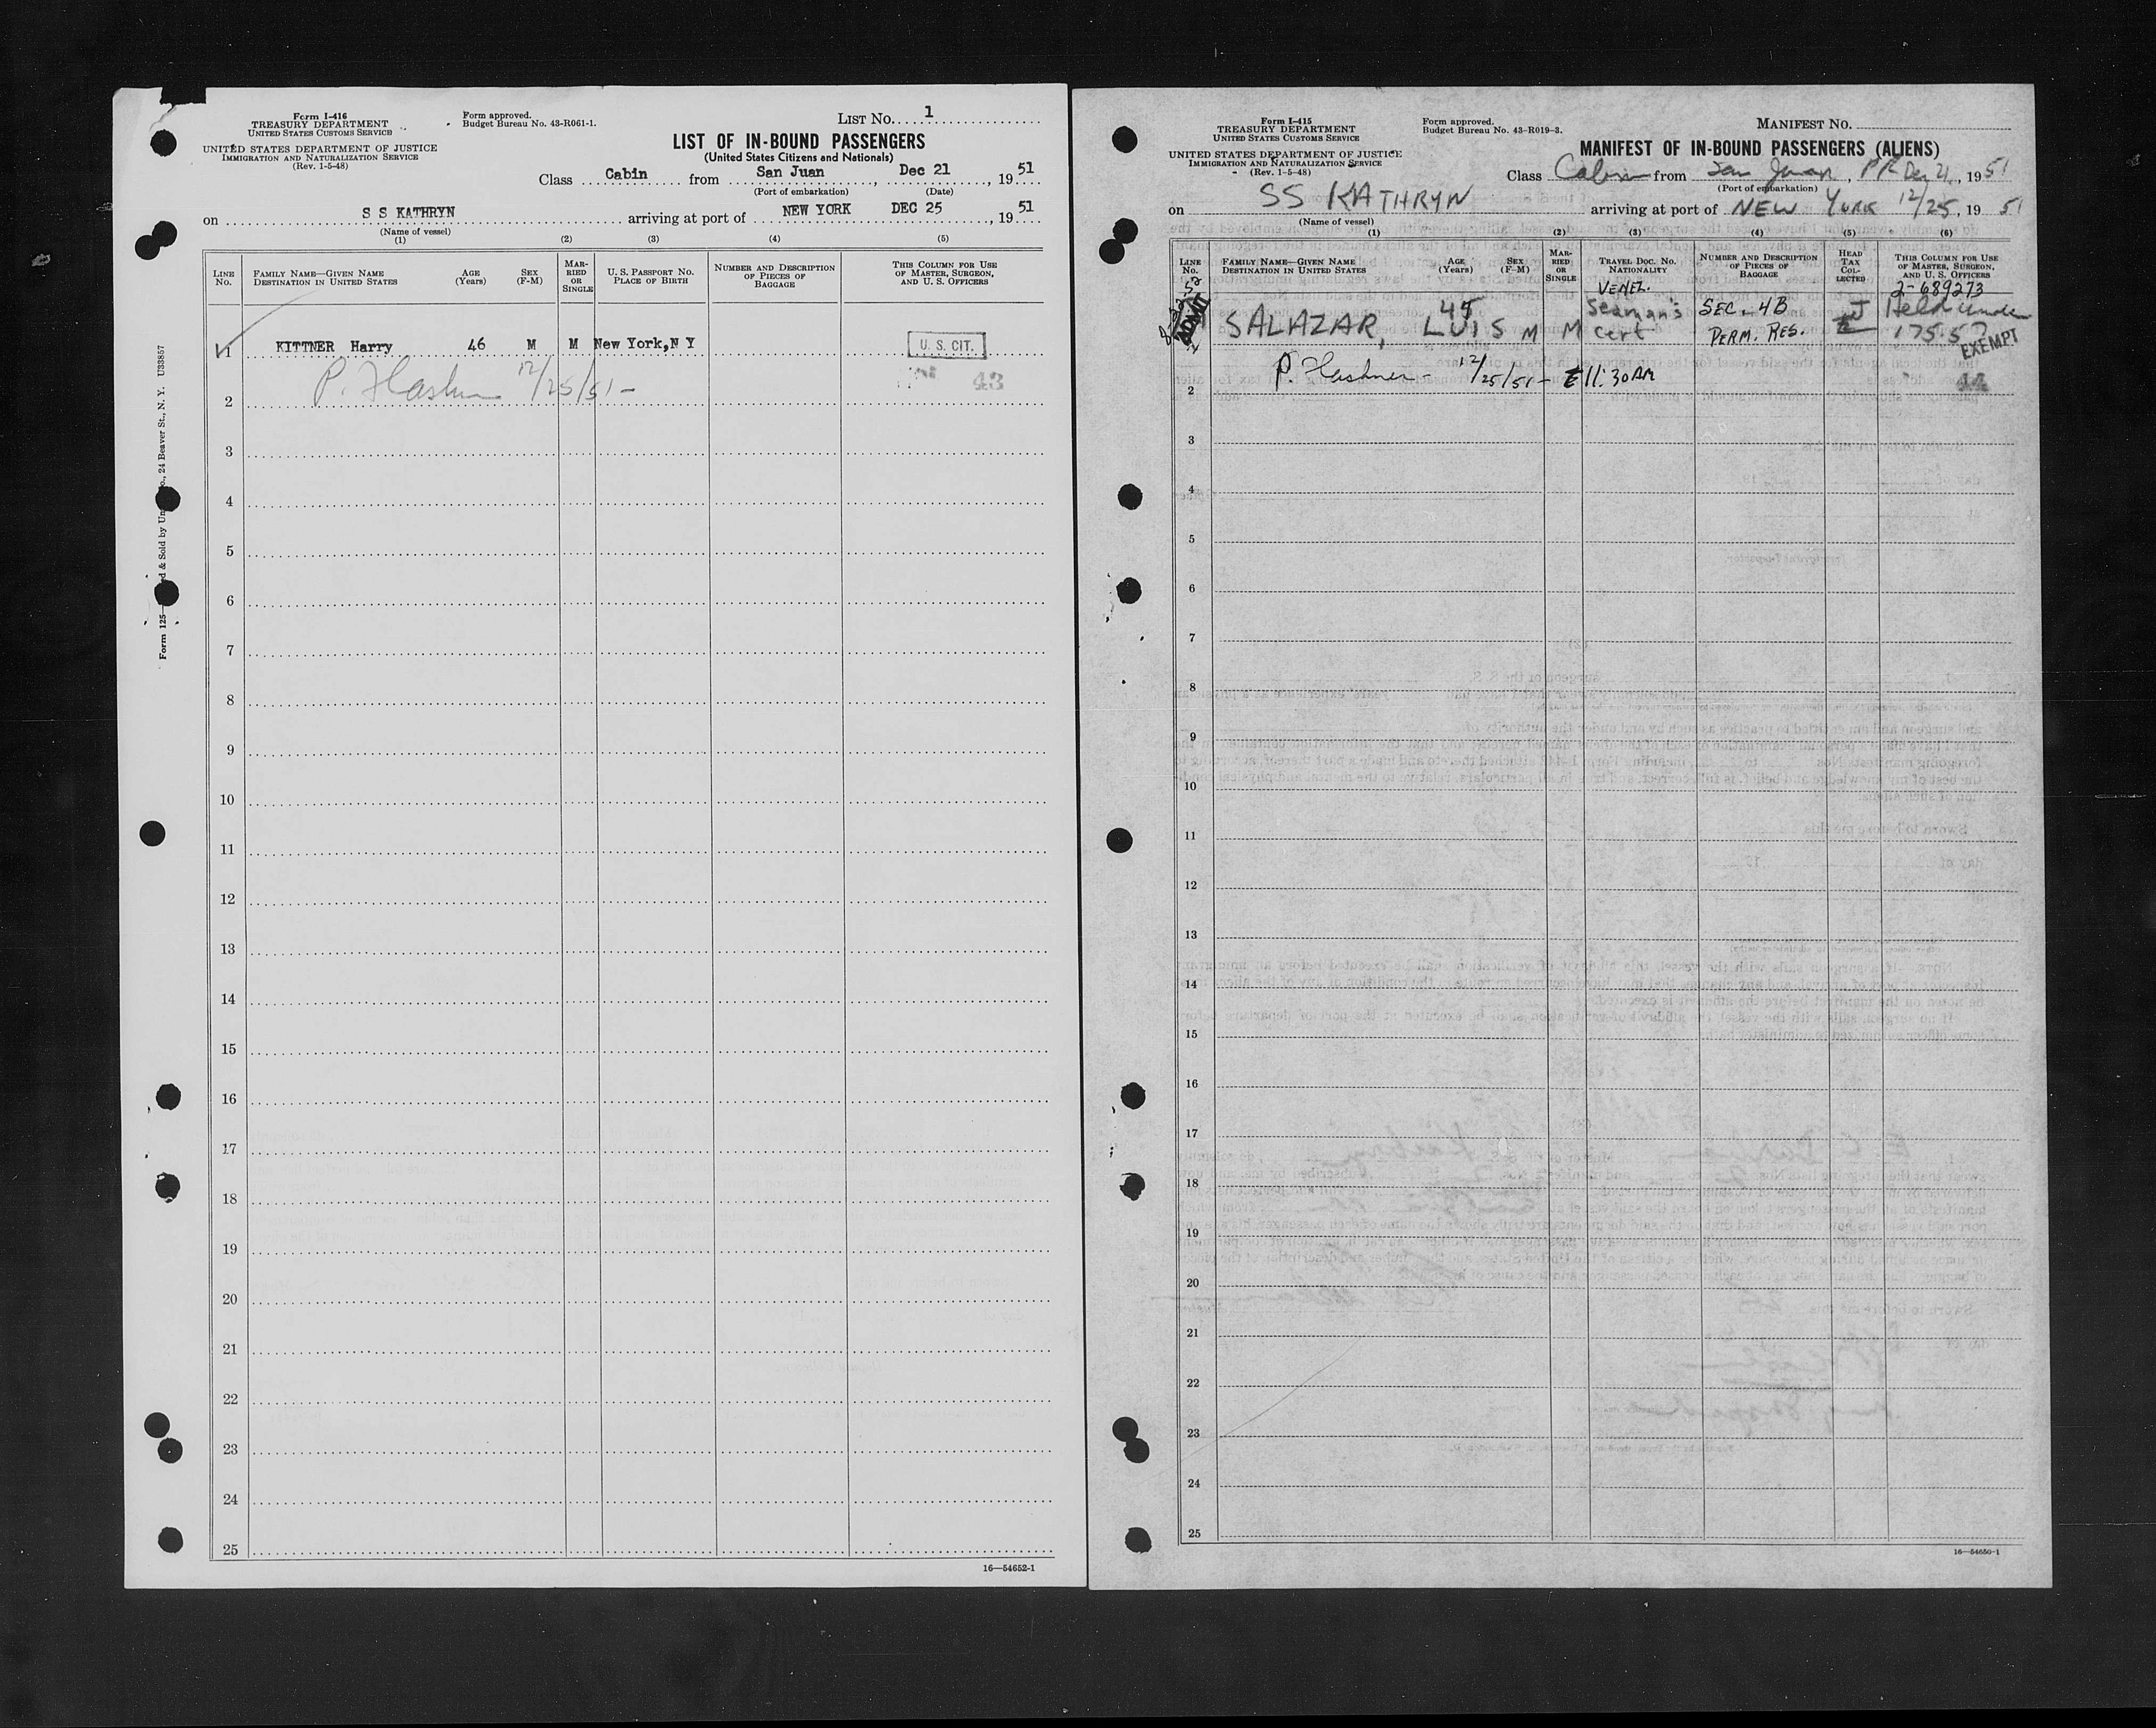 Form I-416
TREASURY DEPARTMENT
UNITED STATES CUSTOMS SERVICE
UNITED STATES DEPARTMENT OF JUSTICE
IMMIGRATION AND NATURALIZATION SERVICE
(Rev. 1-5-48)
Form approved.
Budget Bureau No. 43-R061-1.
LIST No. 1
LIST OF IN-BOUND PASSENGERS
(United States Citizens and Nationals)
Class Cabin from San Juan, Dec 21, 1951
(Port of embarkation) (Date)
on S S KATHRYN arriving at port of NEW YORK DEC 25, 1951
(Name of vessel)
(1) (2) (3) (4) (5)
LINE No. FAMILY NAME—GIVEN NAME DESTINATION IN UNITED STATES AGE (Years) SEX (F-M) MARRIED OR SINGLE U. S. PASSPORT NO. PLACE OF BIRTH NUMBER AND DESCRIPTION OF PIECES OF BAGGAGE THIS COLUMN FOR USE OF MASTER, SURGEON, AND U. S. OFFICERS
1 KITTNER Harry 46 M M New York, N Y U. S. CIT.
43
P. 12/25/51 -
2
3
4
5
6
7
8
9
10
11
12
13
14
15
16
17
18
19
20
21
22
23
24
25
16—54652-1
Form 125 & Sold by 24 Beaver St., N. Y. U33857
Form I-415
TREASURY DEPARTMENT
UNITED STATES CUSTOMS SERVICE
UNITED STATES DEPARTMENT OF JUSTICE
IMMIGRATION AND NATURALIZATION SERVICE
(Rev. 1-5-48)
Form approved.
Budget Bureau No. 43-R019-3.
MANIFEST No.
MANIFEST OF IN-BOUND PASSENGERS (ALIENS)
Class Cabin from San Juan, PR Dec 21, 1951
(Port of embarkation)
on SS KATHRYN arriving at port of NEW YORK 12/25, 1951
(Name of vessel)
(1) (2) (3) (4) (5) (6)
LINE No. FAMILY NAME—GIVEN NAME DESTINATION IN UNITED STATES AGE (Years) SEX (F-M) MARRIED OR SINGLE TRAVEL DOC. NO. NATIONALITY NUMBER AND DESCRIPTION OF PIECES OF BAGGAGE HEAD TAX COLLECTED THIS COLUMN FOR USE OF MASTER, SURGEON, AND U. S. OFFICERS
VENEZ. 2-689273
ADMIT SALAZAR, LUIS 45 M M Seaman's cert SEC. 4B PERM. RES. Held under 175.57
EXEMPT
44
P. 12/25/51 - 11:30 AM
2
3
4
5
6
7
8
9
10
11
12
13
14
15
16
17
18
19
20
21
22
23
24
25
16—54650-1